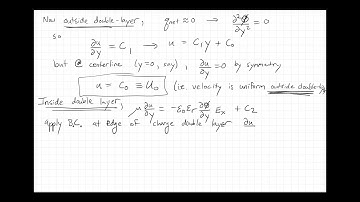 Now outside double-layer, qnet ≈ 0 → ∂²ϕ/∂y² = 0
so
∂u/∂y = C₁ → u = C₁y + C₀
but @ centerline (y=0, say), ∂u/∂y = 0 by symmetry
u = C₀ ≡ U₀ (i.e. velocity is uniform outside double-layer
Inside double layer, μ ∂u/∂y = -ε₀εᵣ ∂ϕ/∂y Eₓ + C₂
apply B.C. at edge of charge double layer ∂u